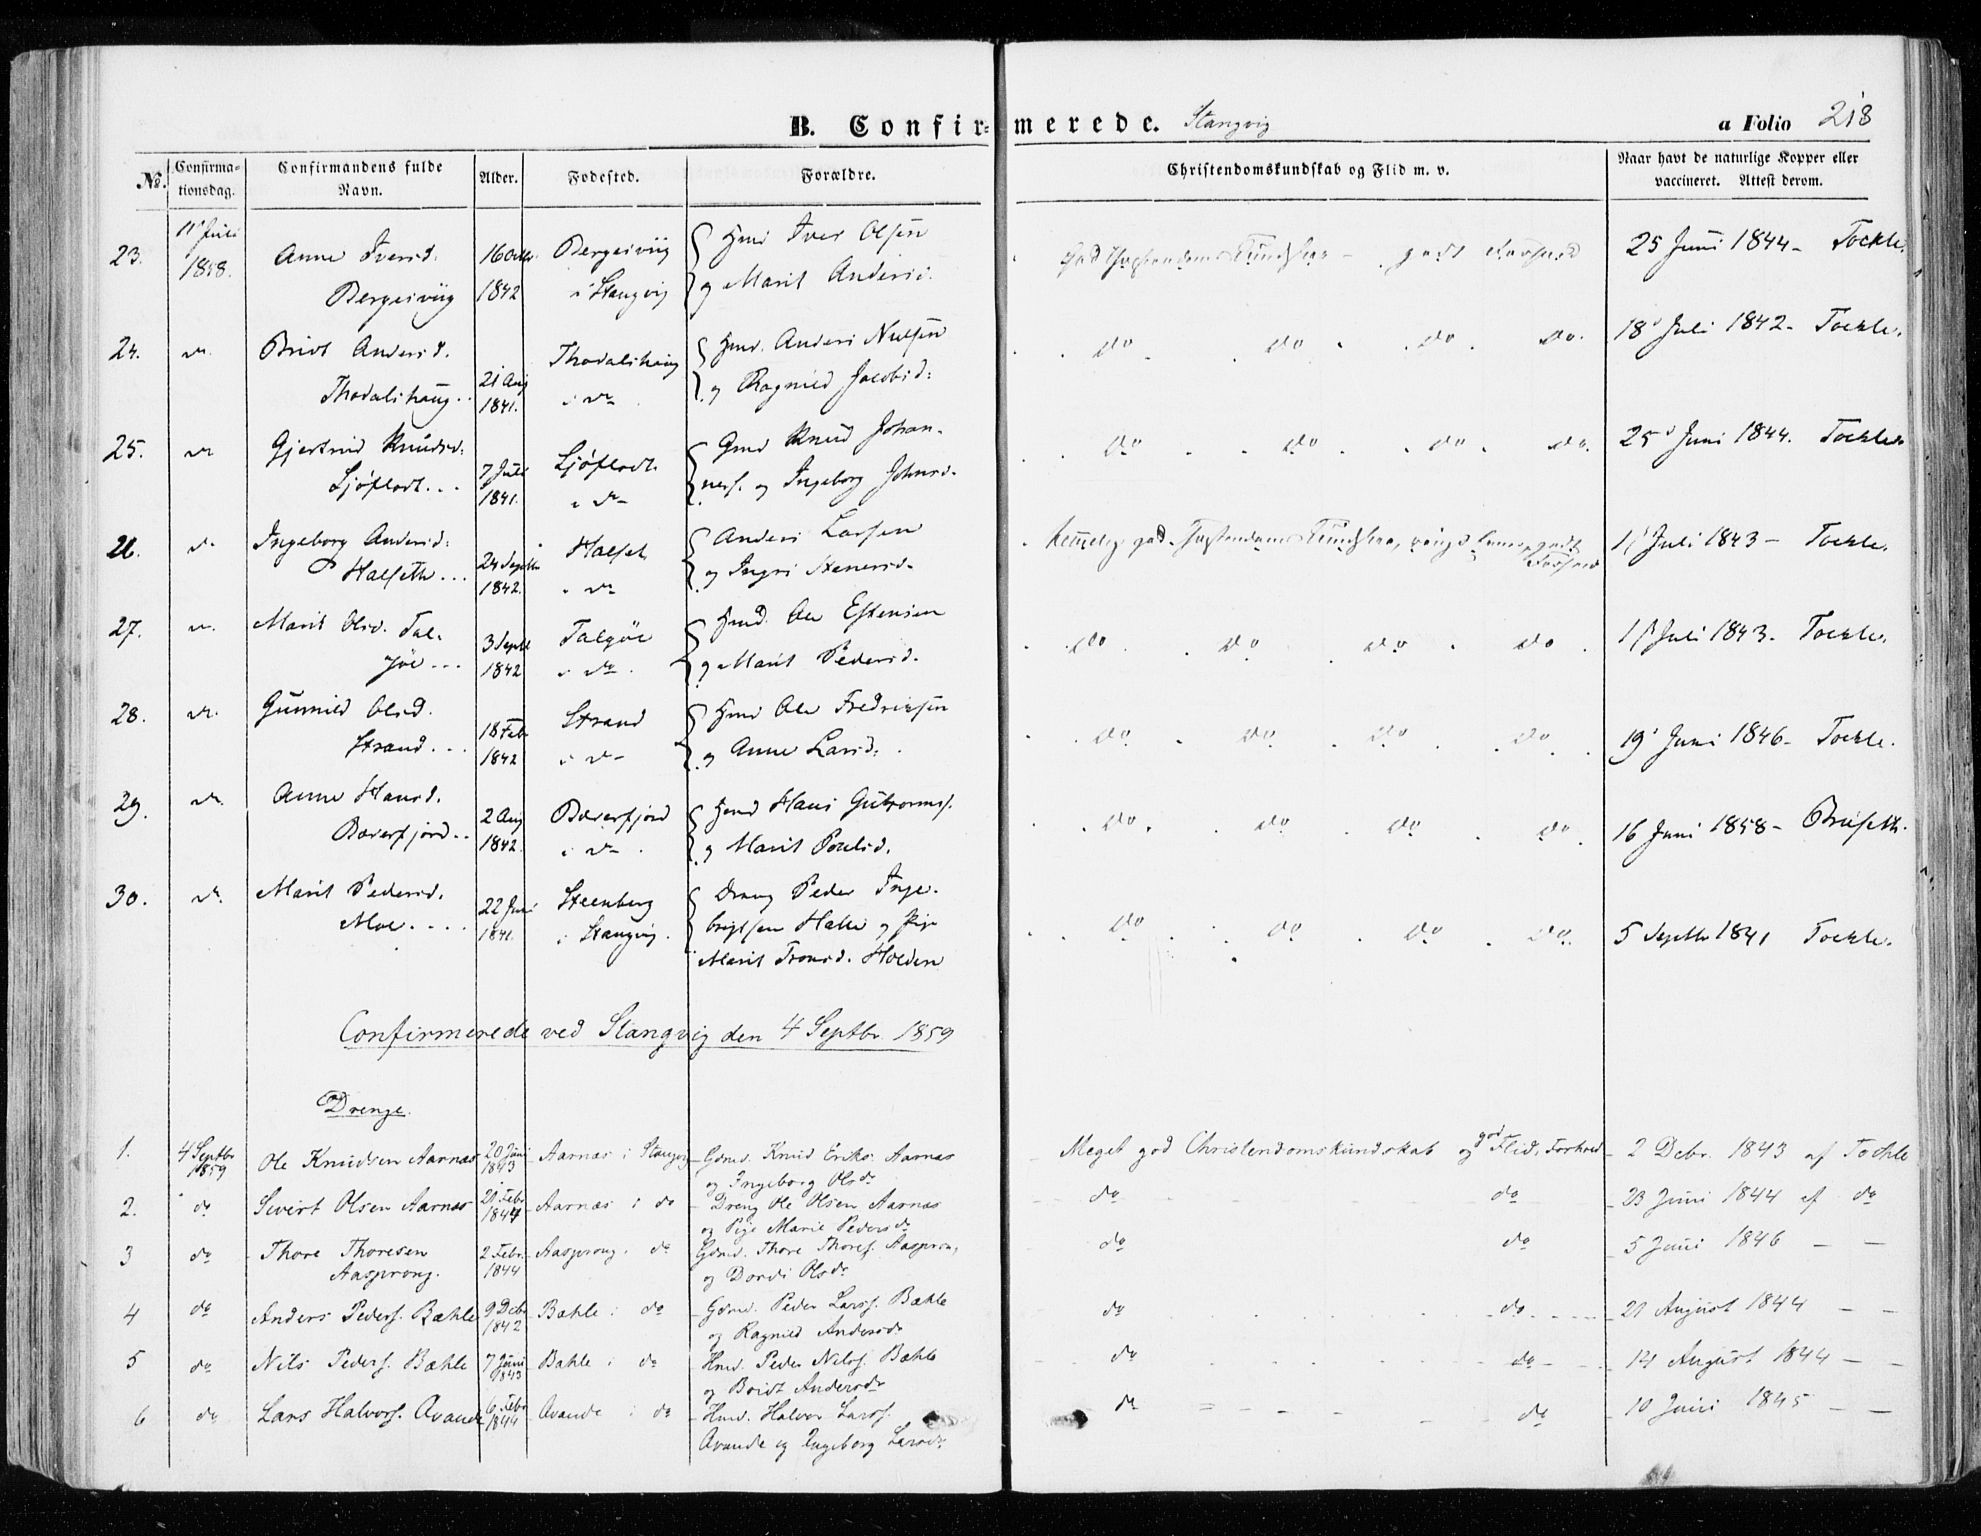 B. Confirmerede. Stangvig a Folio 218
No. Confirmationsdag. Confirmandens fulde Navn. Alder. Fodested. Forældre. Christendomskundskab og Flid m. v. Naar havt de naturlige Kopper eller vaccineret. Attest derom.
23. 11' Juli Anne Iversd. 16 Octbr. Bergeiviig Hmd Iver Olsen 25 Juni 1844 - Tockle.
1858. Bergeiviig 1842 i Stangvig og Marit Andersd.
24. do. Anders d. Thodalshaug Hmd. Anders Nielsen do do do do. 18' Juli 1842 - Tockle.
Thodalshaug. 21 Aug 1841. i do og Ragnild Jacobsd:
25. do Gjertrud Knudsd. Sjøflodt Gmd Knud Johan- do do do do. 25' Juni 1844. Tockle.
Sjøflodt... 7 Juli 1841. i do nes. og Ingeborg Johnsd.
26. do Ingeborg Andersd: Halset Anders Larsen 11' Juli 1843 - Tockle.
Halseth... 24 Septbr 1842. i do og Ingri
27. do. Marit Olsd. Tal- 3 Septb Talgöe Hmd. Ole Estensen do do do do 11' Juli 1843. Tockle.
jöe... 1842 i do. og Marit Pedersd.
28. do. Gunnild Olsd. 18 Feb Strand Hmd Ole Fredriksen do do do do 19' Juni 1846 - Tockle.
Strand... 1842 i do og Anne Larsd.
29. do. Anne Hansd. 2 Aug Bæverfjord Hmd Hans Guttorms. do. do do do 16 Juni 1858 -
Bæverfjord.. 1842. i do. og Marit Poulsd.
30. do. Marit Pedersd. 22 Juni Steenberg Dreng Peder Inge- do do do do. 5 Septbr 1841 Tockle.
Moe.... 1841. i Stangvig. brigtsen Halle og Pige
Marit Tronsd. Holden
Confirmerede ved Stangvig den 4 Septbr. 1859
Drenge.
1. 4 Septbr 1859 Ole Knudsen Aarnæs 20 Juni 1843 Aarnæs i Stangvig Gdmd. Knud Eriks. Aarnæs Meget god Christendomskundskab og god Flid, Forhold 2 Debr. 1843 af Tockle
og Ingeborg Olsdr
2. do Sivert Olsen Aarnæs 21 Febr 1844 Aarnæs i do Dreng Ole Olsen Aarnæs do do 23 Juni 1844 af do
og Pige Marie Pedersdr
3 do Thore Thoresen 2 Febr. 1844 Aasprong. do Gdmd. Thore Thores. Aasprong do do 5 Juni 1846 — —
Aasprong. og Dordi Olsdr
4 do Anders Peders. Bæhle 9 Debr 1842 Bæhle i do Gdmd. Peder Larss. Bæhle do do 21 August 1844 — —
og Ragnild Andersdr
5 do Nils Peders. Bæhle 7 Juni 1843 Bæhle i do Hmd. Peder Nilss. Bæhle do do 14 August 1844 — —
og Andersdr
6 do Lars Halvors. Qvande 6 Febr 1844 Qvande i do Hmd. Halvor Larss. do do 10 Juni 1845 — —
Qvande og Ingeborg Larsdr